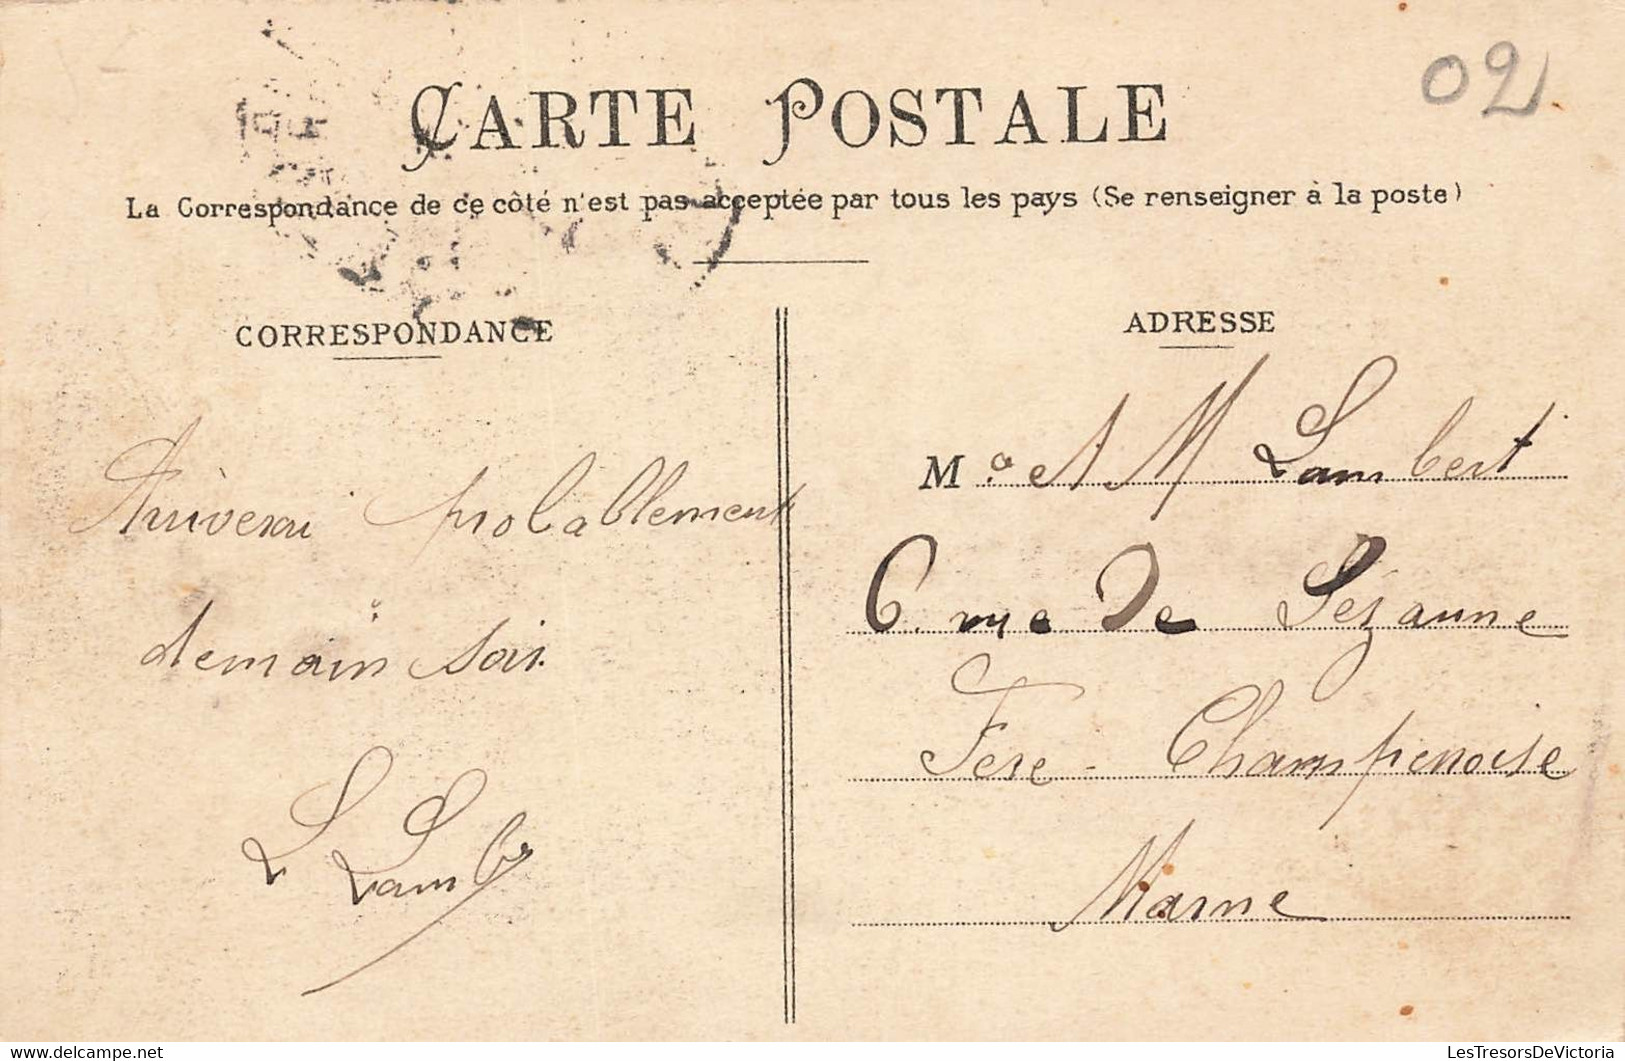 02
CARTE POSTALE
La Correspondance de ce côté n'est pas acceptée par tous les pays (Se renseigner à la poste)
CORRESPONDANCE
Arriverai probablement
demain soir
L Lamb
ADRESSE
M. et M Lambert
6 rue de Sézanne
Fère-Champenoise
Marne
delcampe.net
LesTresorsDeVictoria